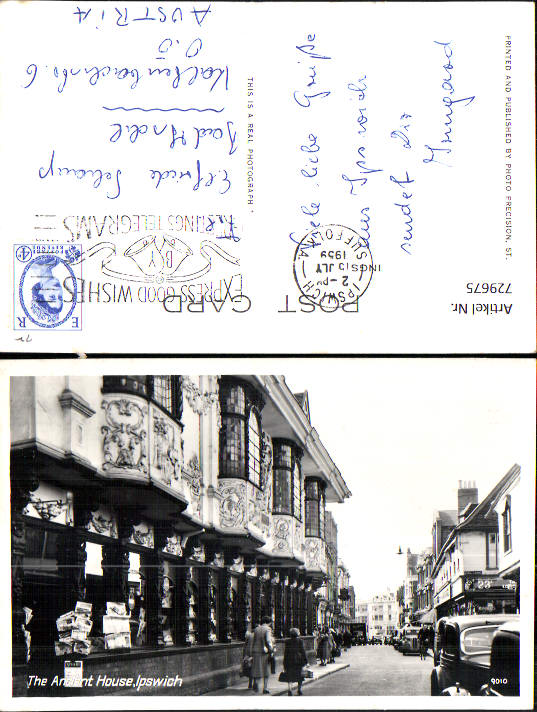 POST CARD
Artikel Nr.
729675
PRINTED AND PUBLISHED BY PHOTO PRECISION, ST.
THIS IS A REAL PHOTOGRAPH
Viele liebe Grüße
aus Ipswich
sendet Dir
Irmgard
IPSWICH
2 - PM
15 JLY
1959
SUFFOLK
EXPRESS GOOD WISHES
BY
GREETINGS TELEGRAMS
E R
REVENUE
4D
Elfriede
Bad
6
O.Ö.
AUSTRIA
The Ancient House, Ipswich
9010
23